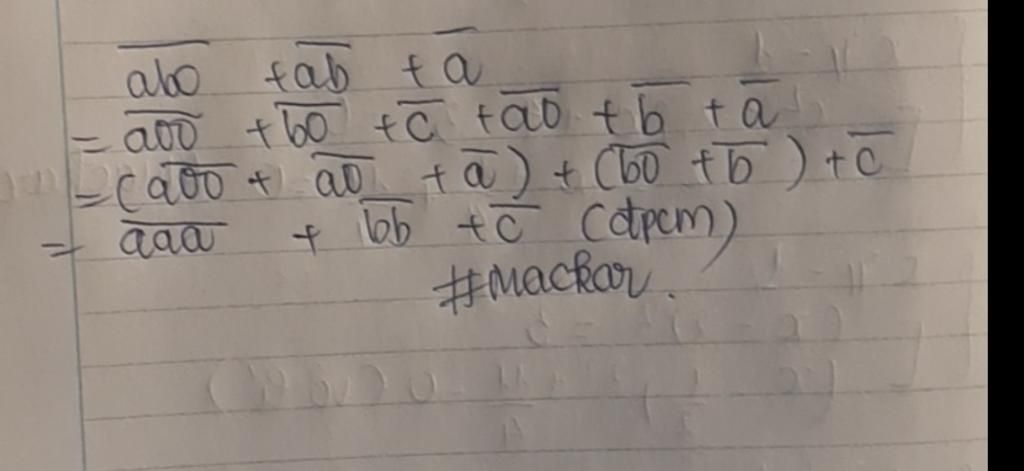 abc + ab + a
= a00 + b0 + c + a0 + b + a
= (a00 + a0 + a) + (b0 + b) + c
= aaa + bb + c (đpcm)
#Mackar.